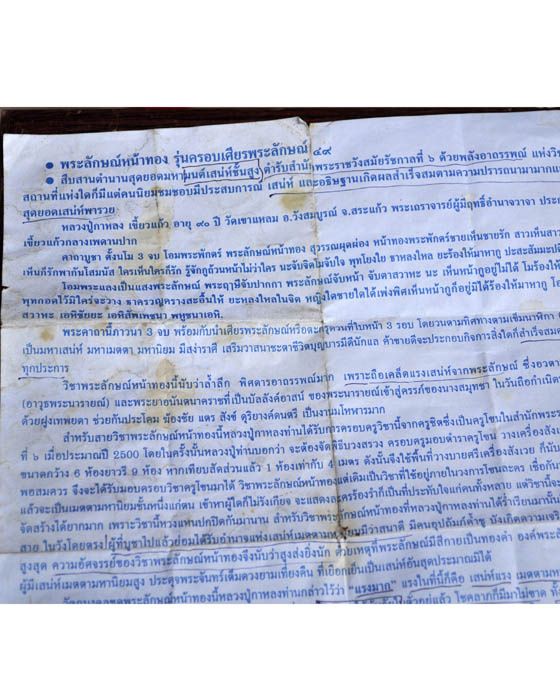 ● พระลักษณ์หน้าทอง รุ่นครอบเศียรพระลักษณ์ ๔๙
● สืบสานตำนานสุดยอดมหามนต์เสน่ห์ชั้นสูง ตำรับสำนักพระราชวังสมัยรัชกาลที่ ๖ ด้วยพลังอาถรรพณ์ แห่งวิ
สถานที่แห่งใดก็มีแต่คนนิยมชมชอบมีประสบการณ์ เสน่ห์ และอธิษฐานเกิดผลสำเร็จสมตามความปรารถนามามากแ
สุดยอดเสน่ห์พารวย
หลวงปู่กาหลง เขี้ยวแก้ว อายุ ๙๐ ปี วัดเขาแหลม อ.วังสมบูรณ์ จ.สระแก้ว พระเถราจารย์ผู้มีฤทธิ์อำนาจวาจา ประเ
เขี้ยวแก้วกลางเพดานปาก
คาถาบูชา ตั้งนโม 3 จบ โอมพระพักตร์ พระลักษณ์หน้าทอง สุวรรณผุดผ่อง หน้าทองพระพักตร์ชายเห็นชายรัก สาวเห็นสาว
เห็นกูรักพากันโสมนัส ใครเห็นใครก็รัก รู้จักกูถ้วนหน้าไม่ว่าใคร นะจับจิตโมจับใจ พุทโธงใย ชาหลงไหล ยะร้องไห้มาหากู
โอมพระแลงเป็นแสงพระลักษณ์ พระฤาษีจับปากกา พระลักษณ์จับหน้า จับตาสวาหะ นะ เห็นหน้ากูอยู่ไม่ได้ โมร้องไห้
พุทกอดไว้มิใคร่จะวาง ธาครวญครางสะอื้นไห้ ยะหลงไหลในจิต หญิงใดชายใดได้เพ่งพิศเห็นหน้ากูก็อยู่มิได้ร้องไห้มาหากู โอม
สวาหะ เอหิชัยยะ เอหิสัพเพชนา พหูชนาเอหิ
พระคาถานี้ภาวนา 3 จบ พร้อมกับนำเศียรพระลักษณ์หรือตะกรุดวนที่ใบหน้า 3 รอบ โดยวนตามทิศทางตามเข็มนาฬิกา
เป็นมหาเสน่ห์ มหาเมตตา มหานิยม มีสง่าราศี เสริมวาสนาชะตาชีวิตบุญบารมีดีนักแล ค้าขายดีจะประกอบกิจการสิ่งใดก็สำเร็จสม
ทุกประการ
วิชาพระลักษณ์หน้าทองนี้นับว่าล้ำลึก พิศดารอาถรรพณ์มาก เพราะถือเคล็ดแรงเสน่ห์จากพระลักษณ์ ซึ่งอวตา
(อาวุธพระนารายณ์) และพระยาอนันตนาคราชที่เป็นบัลลังค์อาสน์ ของพระนารายณ์เข้าสู่ครรภ์ของนางสมุทชา ในวันถือกำเนิด
ด้วยฝูงเทพยดา ช่วยกันประโคม ฆ้องชัย แตร สังข์ ดุริยางค์ดนตรี เป็นงานมโหฬารมาก
สำหรับสายวิชาพระลักษณ์หน้าทองนี้หลวงปู่กาหลงท่านได้รับการครอบครูวิชานี้จากครูชิตซึ่งเป็นครูโขนในสำนักพระร
ที่ ๖ เมื่อประมาณปี 2500 โดยในครั้งนั้นหลวงปู่ท่านบอกว่า จะต้องจัดพิธีบวงสรวง ครอบครูมอบตำราครูโขน วางเครื่องสัง
ขนาดกว้าง 6 ห้องยาวรี 9 ห้อง หากเทียบสัดส่วนแล้ว 1 ห้องเท่ากับ 4 เมตร ดังนั้นจึงใช้พื้นที่วางบายศรีเครื่องสังเวย ก็นับ
พอสมควร จึงจะได้รับมอบครอบวิชาครูโขนมาได้ วิชาพระลักษณ์หน้าทองแต่เดิมเป็นวิชาที่ใช้อยู่ภายในวงการโขนละคร เพื่อ
แล้วจะเป็นเมตตามหานิยมชั้นหนึ่งแก่คน เข้าหาผู้ใดก็ไม่รังเกียจ จะแสดงละครร้องรำก็เป็นที่ประทับใจแก่คนทั้งหลาย แต่วิชานี้จะ
จัดสร้างได้ยากมาก เพราะวิชานี้หวงแหนปกปิดกันมานาน สำหรับวิชาพระลักษณ์หน้าทองที่หลวงปู่กาหลงท่านได้ร่ำเรียนมานั้น
สาย ในวังโดยตรง ผู้ที่บูชาไปแล้วย่อมได้รับอำนาจแห่งเสน่ห์เมตตามหานิยมมีวาสนาดี มีคนอุปถัมภ์ค้ำชู บังเกิดความเจริ
สูงสุด ความอัศจรรย์ของวิชาพระลักษณ์หน้าทองจึงนับว่าสูงส่งยิ่งนัก ด้วยเหตุที่พระลักษณ์มีสีกายเป็นทองคำ องค์พระ
ผู้มีเสน่ห์เมตตามหานิยมสูง ประดุจพระจันทร์เต็มดวงยามเที่ยงคืน ที่เยือกเย็นเป็นเสน่ห์อันสุดประมาณมิได้
ชุดพระลักษณ์หน้าทองนี้หลวงปู่กาหลงท่านกล่าวไว้ว่า "แรงมาก" แรงในที่นี้ก็คือ เสน่ห์แรง เมตตามห
ตัวอยู่แล้ว โชคลาภก็มีมาไม่ขาด ทั้ง